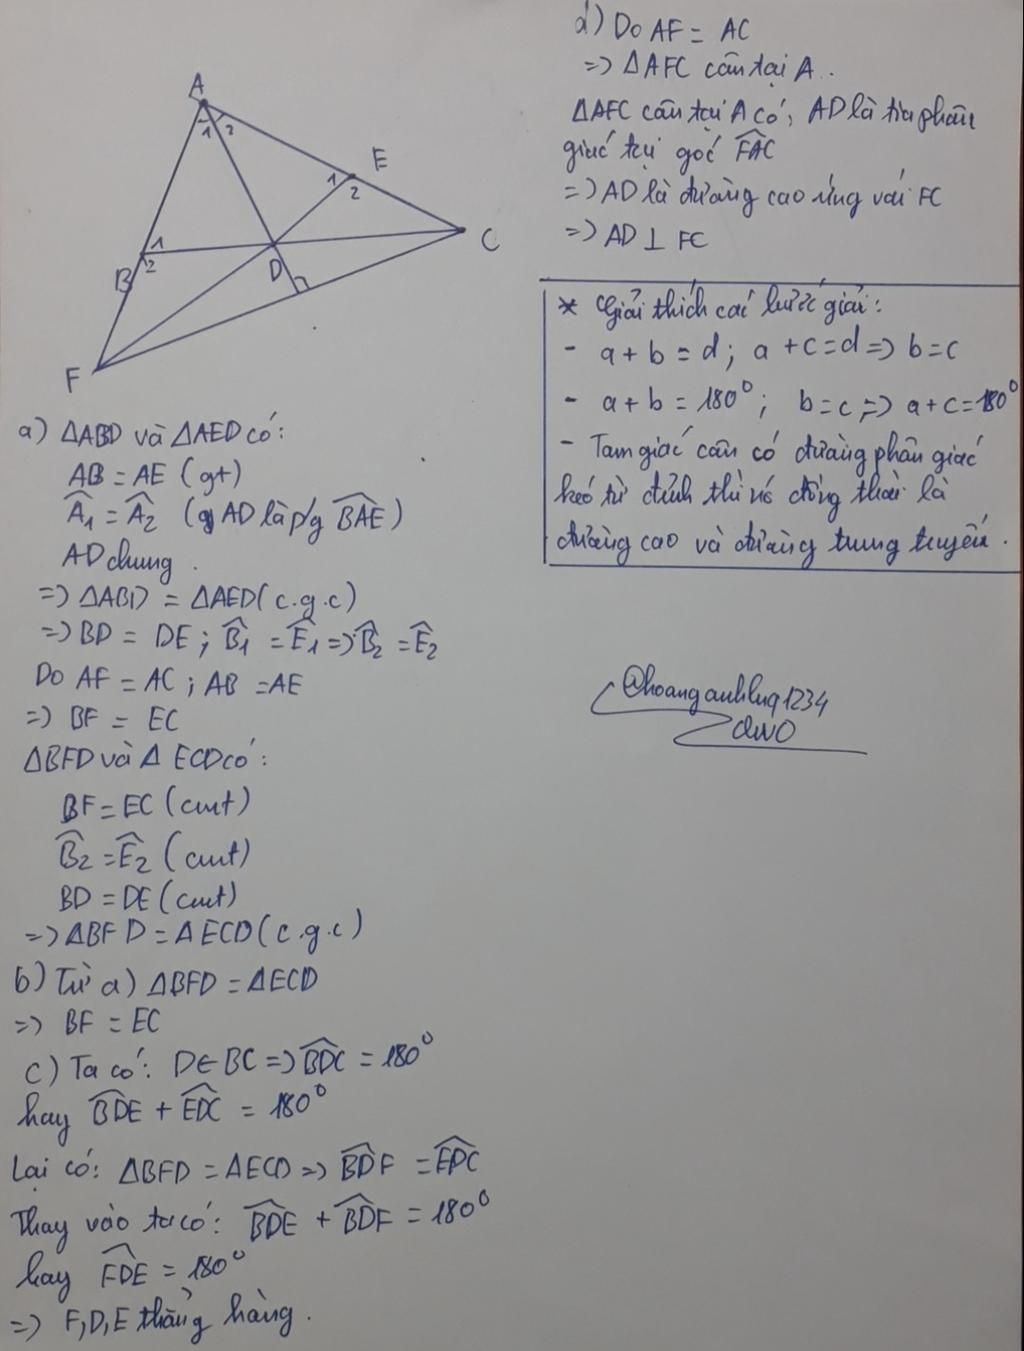 A
1 2
E
1
2
C
B
1
2
D
F
a) ΔABD và ΔAED có:
AB = AE (gt)
Â1 = Â2 (AD là p/g B̂AE)
AD chung.
=> ΔABD = ΔAED (c.g.c)
=> BD = DE; B̂1 = Ê1 => B̂2 = Ê2
Do AF = AC; AB = AE
=> BF = EC
ΔBFD và Δ ECD có:
BF = EC (cmt)
B̂2 = Ê2 (cmt)
BD = DE (cmt)
=> ΔBFD = ΔECD (c.g.c)
b) Từ a) ΔBFD = ΔECD
=> BF = EC
c) Ta có: D∈BC => B̂DC = 180°
hay B̂DE + ÊDC = 180°
Lại có: ΔBFD = ΔECD => B̂DF = ÊDC
Thay vào ta có: B̂DE + B̂DF = 180°
hay F̂DE = 180°
=> F,D,E thẳng hàng.
d) Do AF = AC
=> ΔAFC cân tại A.
ΔAFC cân tại A có, AD là tia phân
giác tại góc F̂AC
=> AD là đường cao ứng với FC
=> AD ⊥ FC
* Giải thích các bước giải:
- a + b = d; a + c = d => b = c
- a + b = 180°; b = c => a + c = 180°
- Tam giác cân có đường phân giác
kẻ từ đỉnh thì nó đồng thời là
đường cao và đường trung tuyến.
@hoanganhluq1234